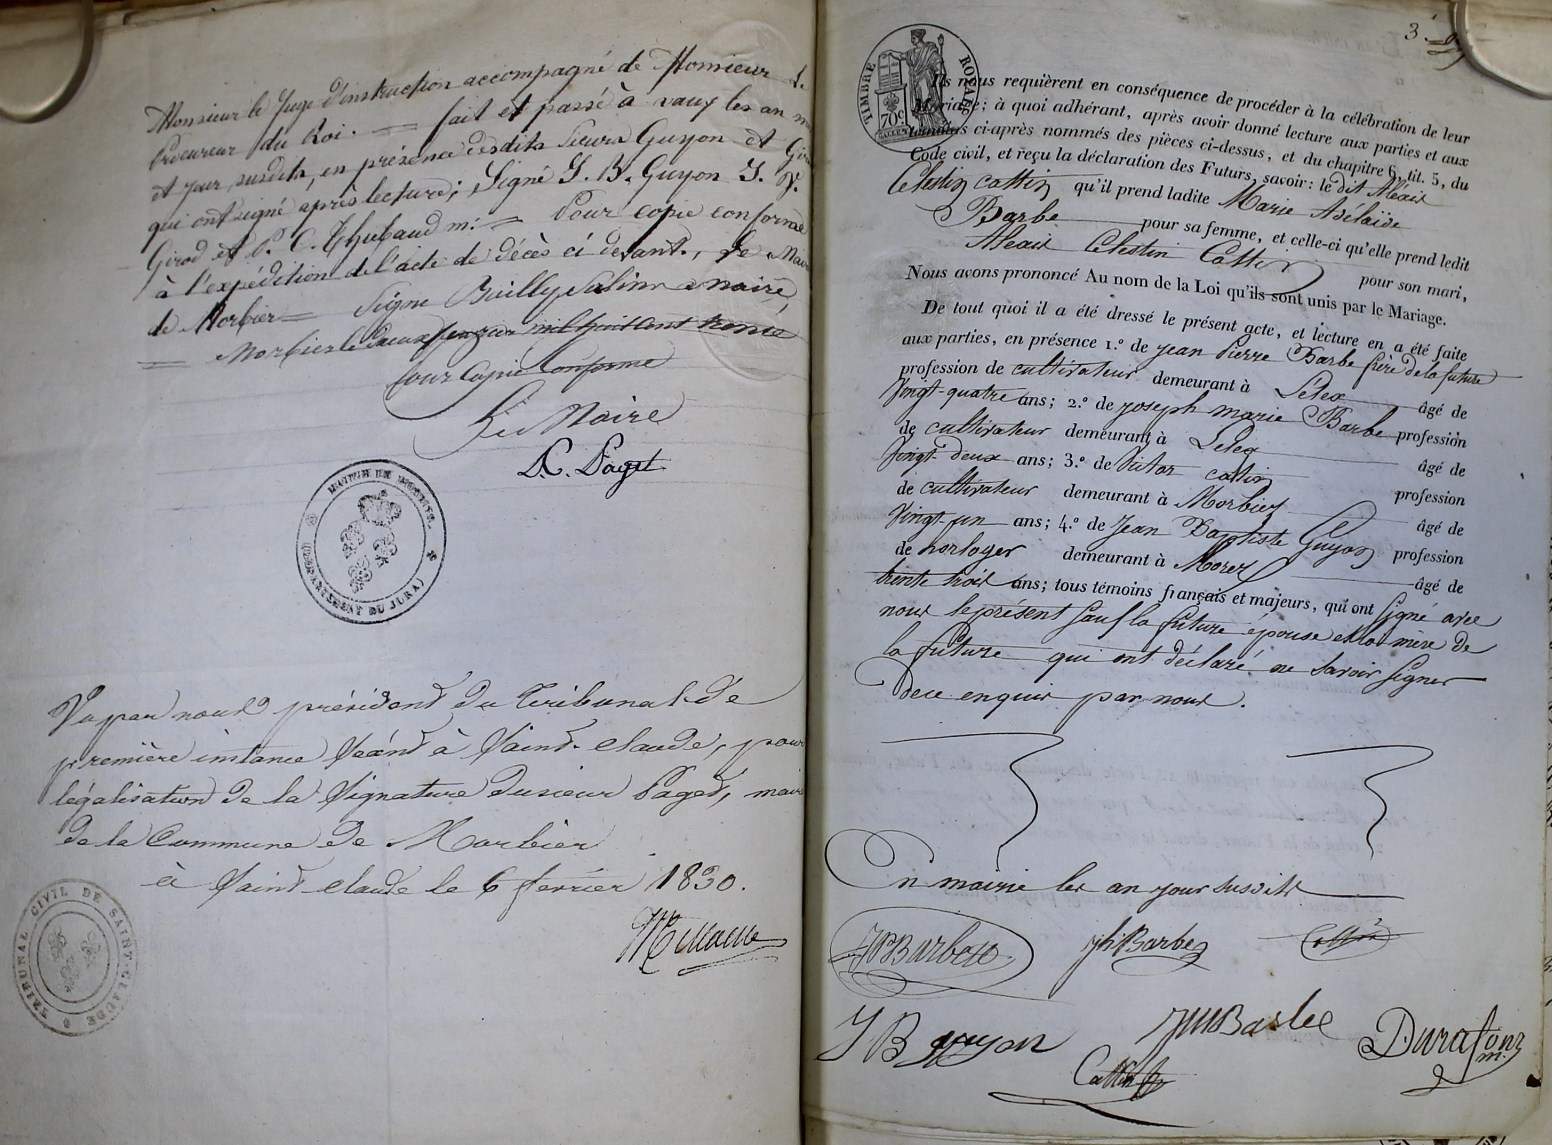 Monsieur le Juge d'instruction accompagné de Monsieur Le
Procureur du Roi. — fait et passé à vaux les an m
et jour susdits, en présence desdits sieurs Guyon et Giro
qui ont signé après lecture; Signé J. B. Guyon J. F.
Girod et P. C. Thubaud m: = Pour copie conforme
à l'expédition de l'acte de décès ci devant, le Maire
de Morbier = Signé Bailly Salins maire,
= Morbier le deux janvier mil huit cent trente
pour Copie Conforme
Le Maire
A. C. Paget
MAIRIE DE MORBIER.
(DEPARTEMENT DU JURA)
Vu par nous président du tribunal de
première instance séant à Saint-Claude, pour
légalisation de la signature du sieur Paget, maire
de la Commune de Morbier
à Saint Claude le 6 fevrier 1830.
TRIBUNAL CIVIL DE SAINT-CLAUDE
3.
TIMBRE ROYAL
70c
Ils nous requièrent en conséquence de procéder à la célébration de leur
Mariage; à quoi adhérant, après avoir donné lecture aux parties et aux
témoins ci-après nommés des pièces ci-dessus, et du chapitre 6, tit. 5, du
Code civil, et reçu la déclaration des Futurs, savoir: le dit Alexis
Celestin Cattin qu'il prend ladite Marie Adélaïde
Barbe pour sa femme, et celle-ci qu'elle prend ledit
Alexis Celestin Cattin pour son mari,
Nous avons prononcé Au nom de la Loi qu'ils sont unis par le Mariage.
De tout quoi il a été dressé le présent acte, et lecture en a été faite
aux parties, en présence 1.º de jean Pierre Barbe frère de la future
profession de cultivateur demeurant à Lelex âgé de
Vingt-quatre ans; 2.º de joseph marie Barbe profession
de cultivateur demeurant à Lelex âgé de
Vingt deux ans; 3.º de Victor Cattin profession
de cultivateur demeurant à Morbier âgé de
Vingt-un ans; 4.º de Jean Baptiste Guyon profession
de horloger demeurant à Morez âgé de
trente trois ans; tous témoins français et majeurs, qui ont signé avec
nous le présent sauf la future épouse et la mère de
la future qui ont déclaré ne savoir signer
de ce enquis par nous.
En mairie les an jour susdits
JP Barbe
Jh Barbe
Cattin
J B guyon
JM Barbe
Cattin
Durafour
m.